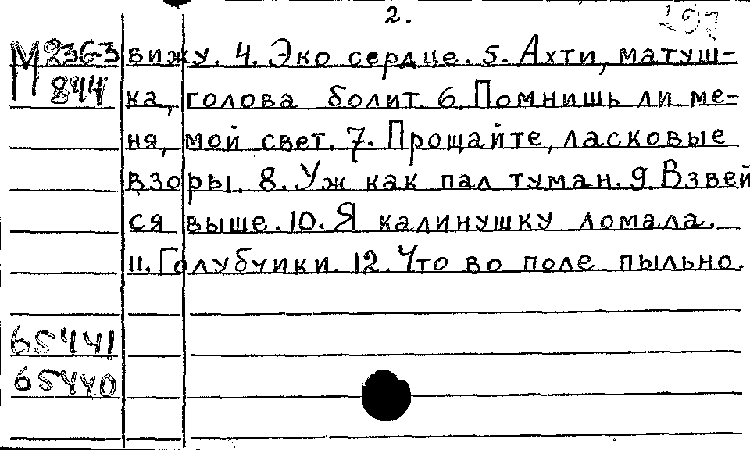 2.
297
М 236-3 вижу. 4. Эко сердце. 5. Ахти, матуш-
844 ка, голова болит. 6. Помнишь ли ме-
ня, мой свет. 7. Прощайте, ласковые
взоры. 8. Уж как пал туман. 9. Взвей
ся выше. 10. Я калинушку ломала.
11. Голубчики. 12. Что во поле пыльно.
65441
65440